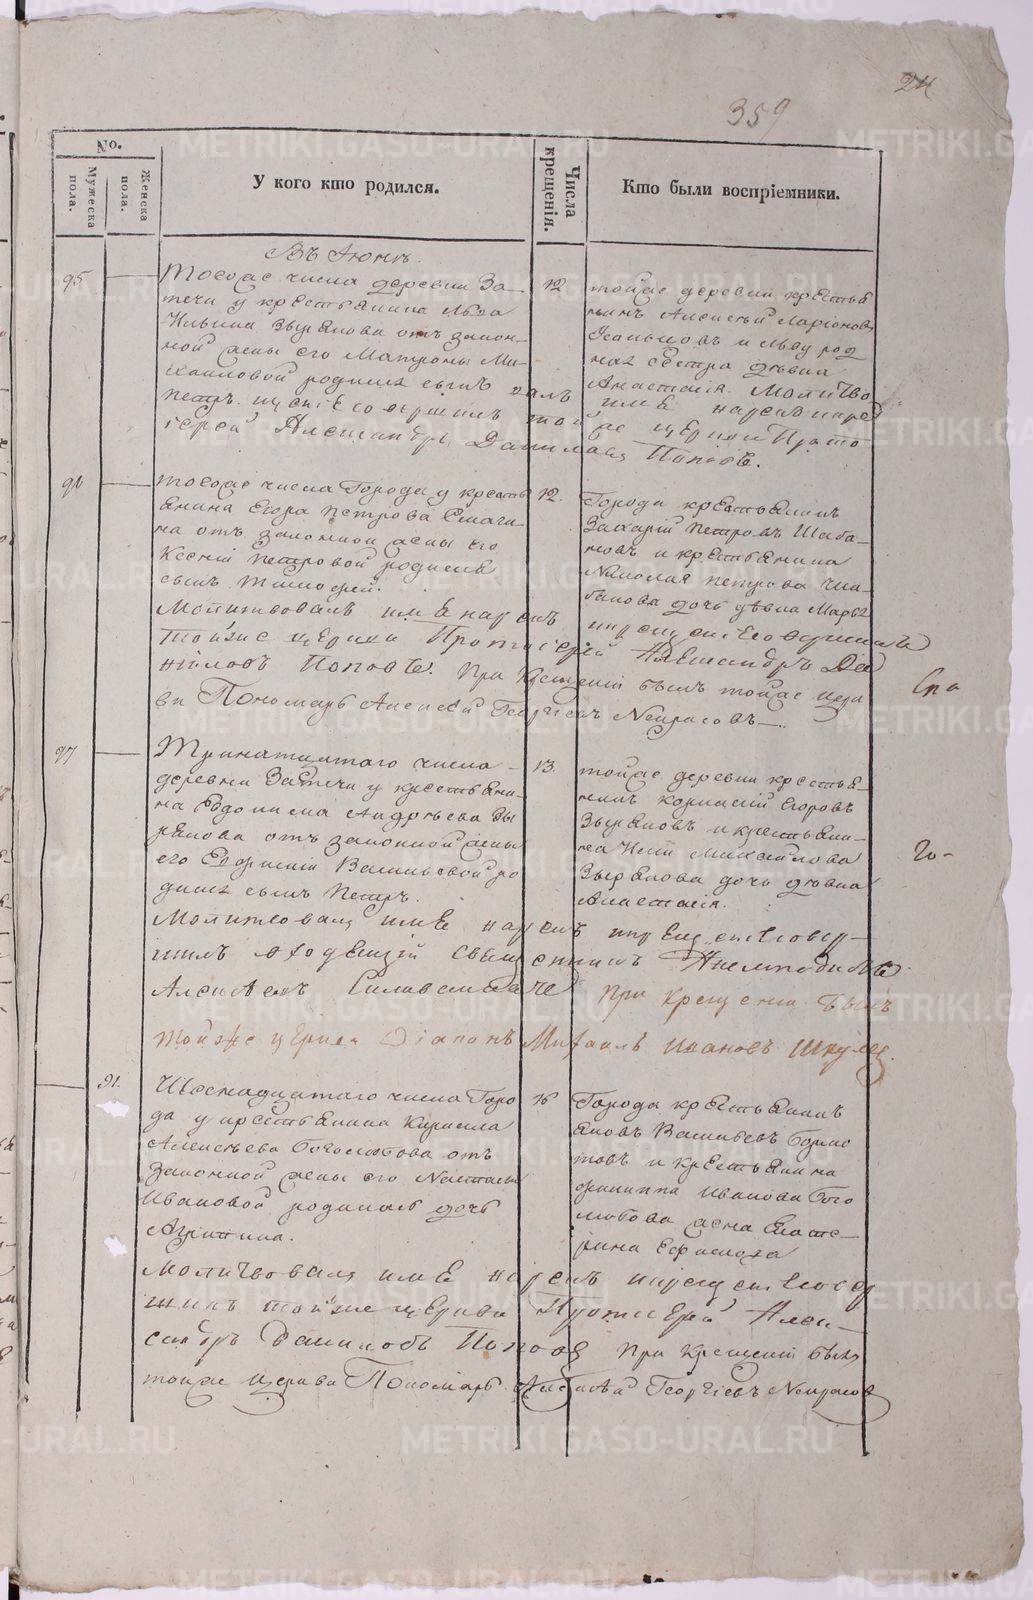 24
359
No.
Мужеска пола.
Женска пола.
У кого кто родился.
Числа крещенія.
Кто были воспріемники.
Въ Іюнѣ.
95
Тогоже числа деревни За-
течи у крестьянина Льва
Ильина Зырянова отъ закон-
ной жены его Матроны Ми-
хайловой родился сынъ
Петръ.
12
тойже деревни крестья
нинъ Алексѣй Ларіоновъ
и Льву род
ная сестра дѣвка
Анастасія. Молитво
валъ имя нареклъ и
крещеніе совершилъ той же церкви Прото
іерей Александръ Даниловъ Поповъ.
96
тогоже числа Города у кресть
янина Егора Петрова
на отъ законной жены его
Ксеніи Петровой родился
сынъ Тимофей.
12.
Города крестьянинъ
Захарій Петровъ Шаба-
новъ и крестьянина
Николая Петрова
дочь дѣвка Марья
Молитвовалъ имя нареклъ и крещеніе совершилъ
тойже церкви Протоіерей Александръ Да
ниловъ Поповъ. При крещеніи былъ тойже церк
ви Пономарь Алексѣй Георгіевъ Некрасовъ.
97
Тринатцатаго числа
деревни Затечи у крестьяни-
на Евдокима Андреева Зы
рянова отъ законной жены
его Евфиміи Васильевой ро
дился сынъ Петръ.
13.
тойже деревни крестья-
нинъ Корнилій Егоровъ
Зыряновъ и крестьяни-
на Михайлова
Зырянова дочь дѣвка
Анастасія.
Молитвовалъ имя нареклъ и крещеніе совер-
шилъ Священникъ
Алексѣевъ при крещеніи былъ
тойже церкви Діаконъ Михаилъ Ивановъ
91.
Шеснадцатаго числа Горо
да у крестьянина Кирилла
Алексѣева Боголюбова отъ
законной жены его Настасьи
Ивановой родилась дочь
Агрипина.
16
Города крестьянинъ
Яковъ Васильевъ
и крестьянина
Филиппа Иванова Бого
любова жена Екате-
рина Ефимова
Молитвовалъ имя нареклъ и крещеніе совер
шилъ тойже церкви Протоіерей Алек-
сандръ Даниловъ Поповъ при крещеніи былъ
тойже церкви Пономарь Алексѣй Георгіевъ Некрасовъ
METRIKI.GASO-URAL.RU